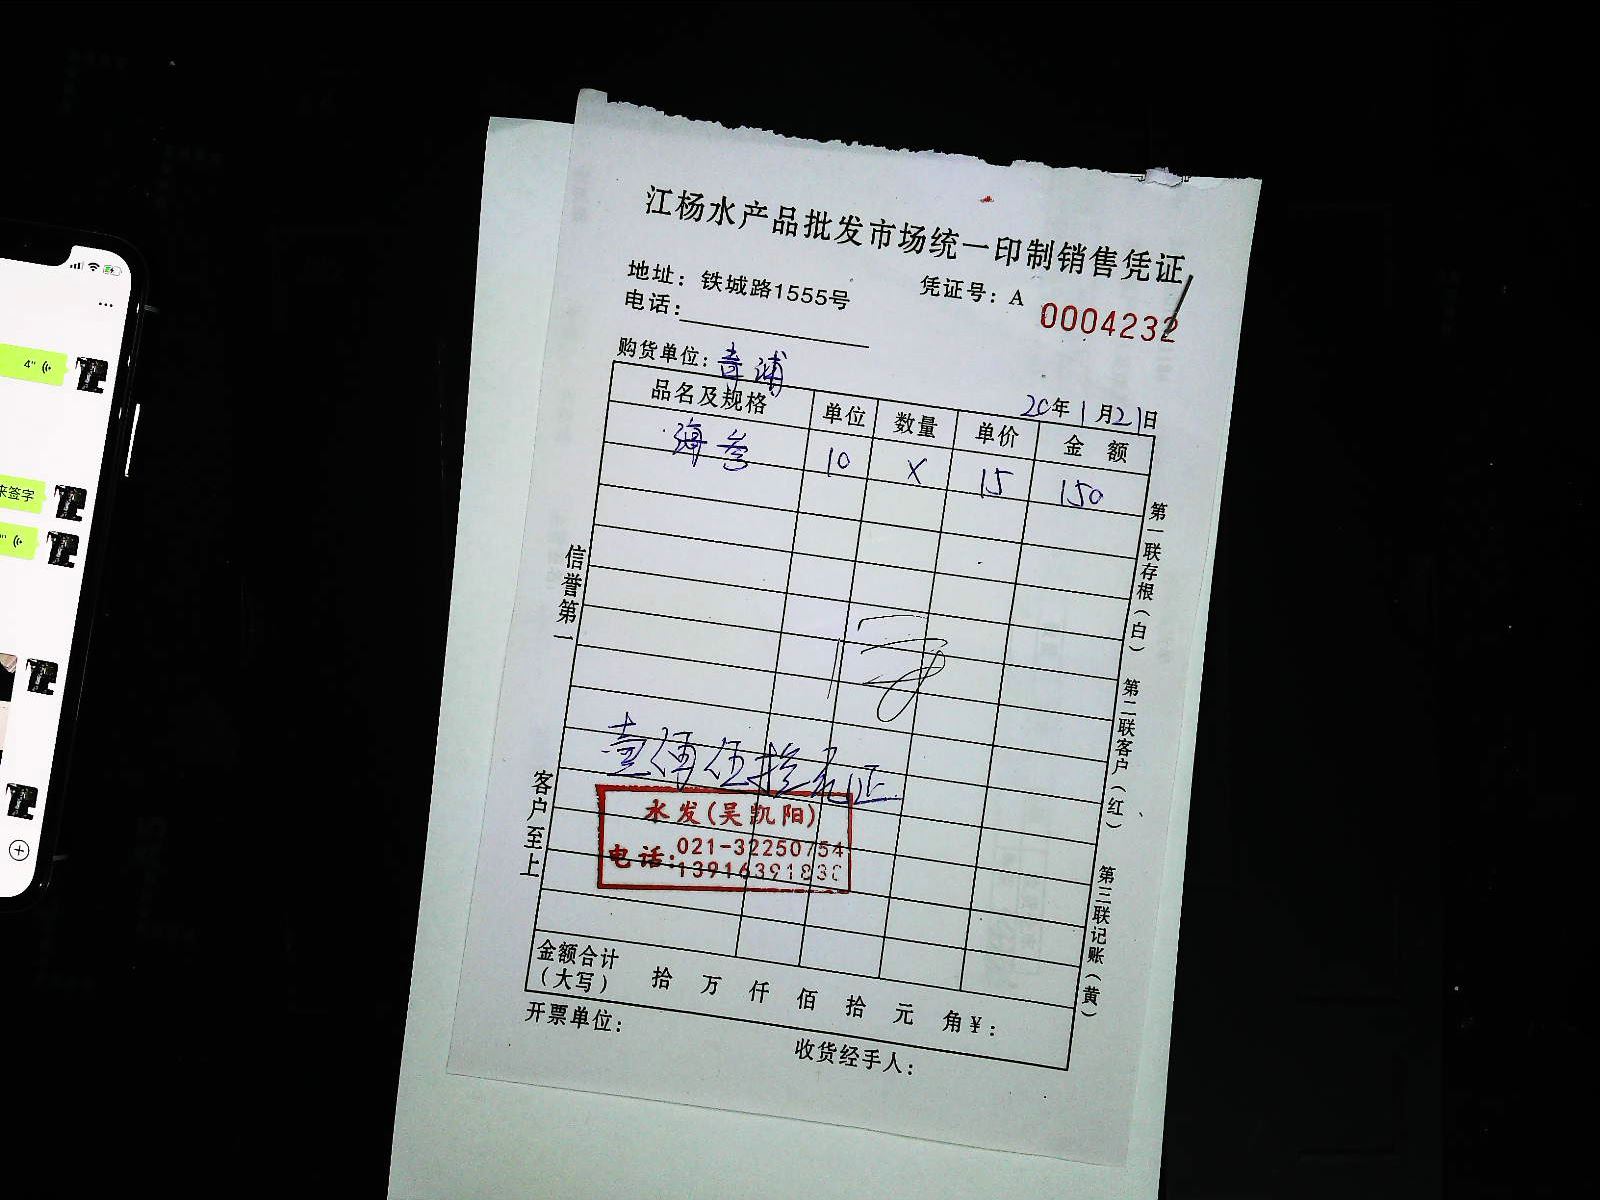 江杨水产品批发市场统一印制销售凭证
地址：铁城路1555号
凭证号：A 0004232
电话：
购货单位：青浦
20年1月21日
品名及规格 单位 数量 单价 金额
海参 10 X 15 150
壹佰伍拾元正
水发(吴凯阳)
电话：021-32250754
1391639183
金额合计（大写） 拾 万 仟 佰 拾 元 角 ￥：
开票单位：
收货经手人：
信誉第一
客户至上
第一联存根（白） 第二联客户（红） 第三联记账（黄）
4"
来签字